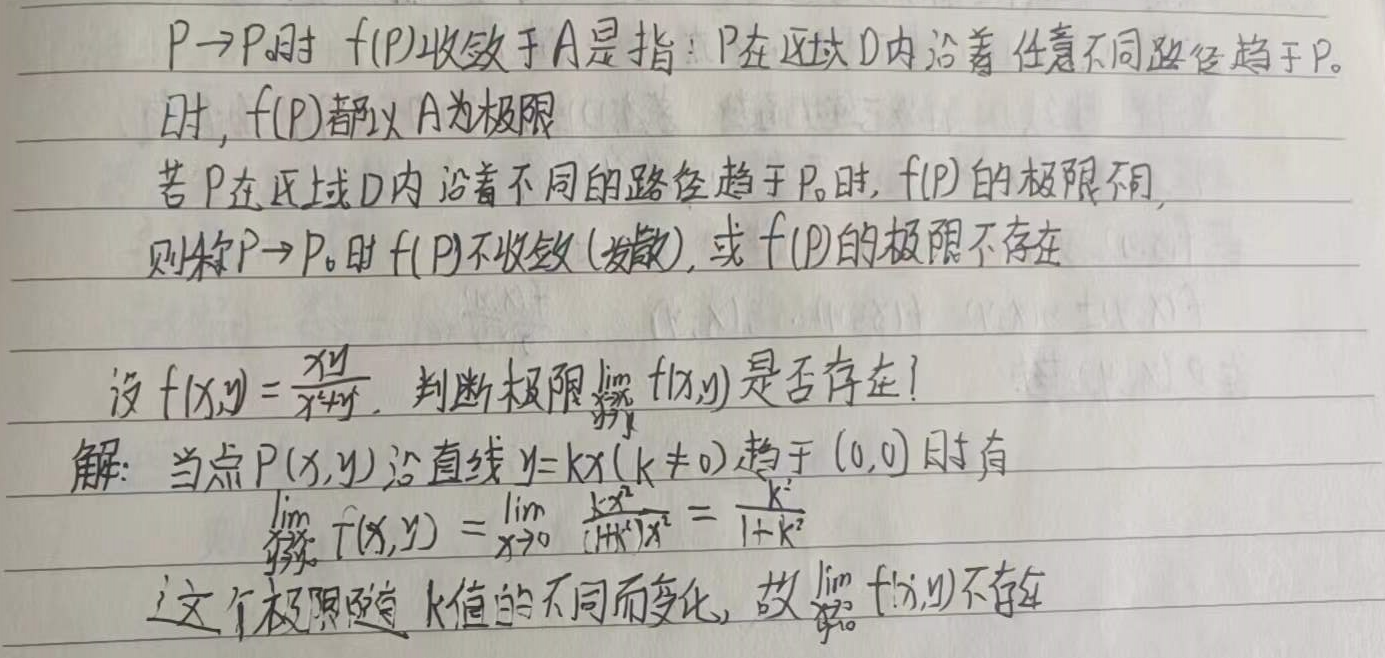 P→P₀时 f(P)收敛于A是指:P在区域D内沿着任意不同路径趋于P₀
时,f(P)都以A为极限
若P在区域D内沿着不同的路径趋于P₀时,f(P)的极限不同,
则称P→P₀时f(P)不收敛(发散),或f(P)的极限不存在
设 f(x,y)=xy/(x²+y²). 判断极限lim f(x,y)是否存在?
解:当点P(x,y)沿直线y=kx(k≠0)趋于(0,0)时有
lim f(x,y) = lim x→0 kx²/((1+k²)x²) = k²/(1+k²)
这个极限随着k值的不同而变化,故lim x→0 y→0 f(x,y)不存在